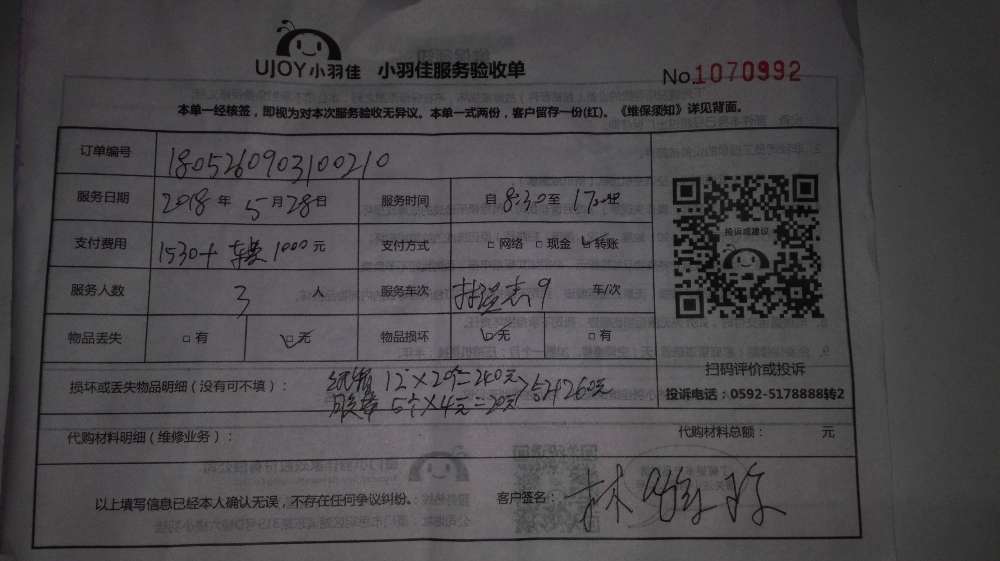 UJOY小羽佳 小羽佳服务验收单
No.1070992
本单一经核签，即视为对本次服务验收无异议。本单一式两份，客户留存一份(红)。《维保须知》详见背面。
订单编号 180526090310021​0
服务日期 2018年5月28日 服务时间 自8:30至17:00
支付费用 1530+ 1000元 支付方式 □网络 □现金 ☑转账
服务人数 3 人 服务车次 9 车/次
物品丢失 □有 ☑无 物品损坏 ☑无 □有
投诉或建议
扫码评价或投诉
投诉电话：0592-5178888转2
损坏或丢失物品明细（没有可不填）： 纸箱 12×20个=240元
胶带 5个×4元=20元 >合计260元
代购材料明细（维修业务）： 代购材料总额： 元
以上填写信息已经本人确认无误，不存在任何争议纠纷。 客户签名： 林